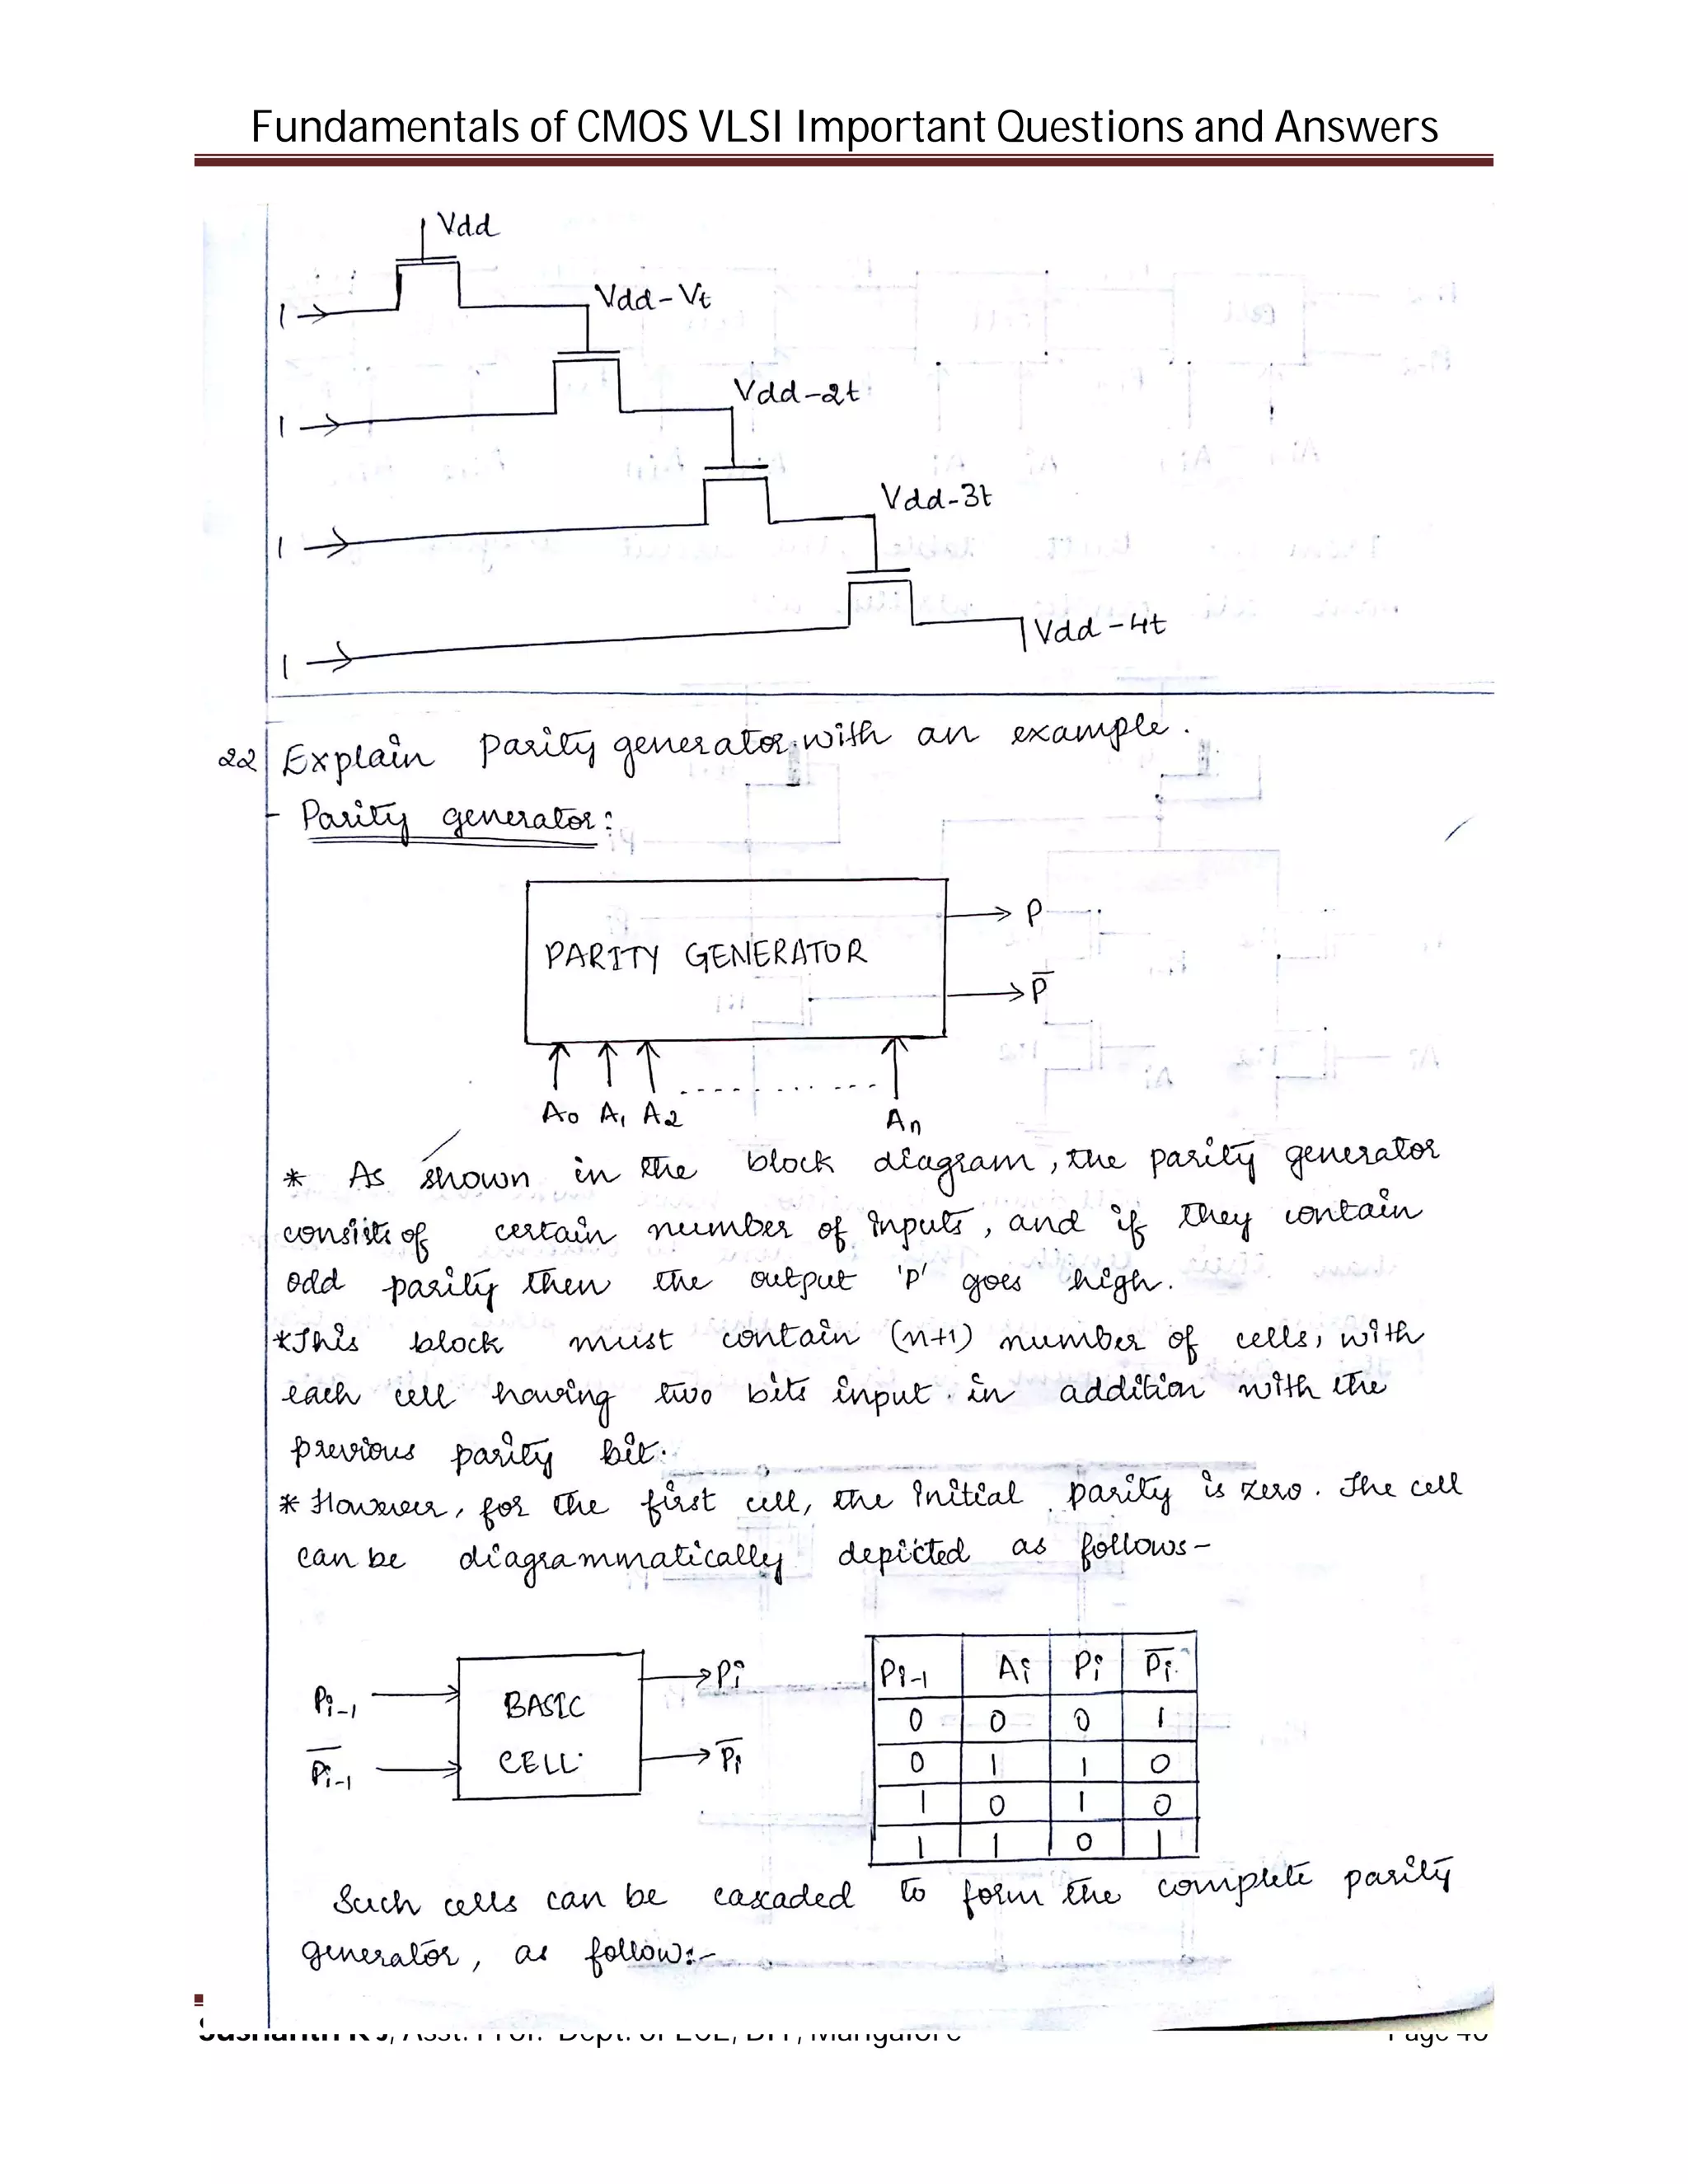 Fundamentals of CMOS VLSI Important Questions and Answers
Vdd
1
Vdd-Vt
1
Vdd-2t
1
Vdd-3t
1
Vdd-4t
22 Explain parity generator with an example.
- Parity generator:
PARITY GENERATOR
P
P̅
A0 A1 A2 An
* As shown in the block diagram, the parity generator
consists of certain number of inputs, and if they contain
odd parity then the output 'P' goes high.
*This block must contain (n+1) number of cells, with
each cell having two bits input in addition with the
previous parity bit.
* However, for the first cell, the initial parity is zero. The cell
can be diagrammatically depicted as follows-
Pi-1
P̅i-1
BASIC
CELL
Pi
P̅i
Pi-1 Ai Pi P̅i
0 0 0 1
0 1 1 0
1 0 1 0
1 1 0 1
Such cells can be cascaded to form the complete parity
generator, as follow:-
Asst. Prof. Dept. of ECE, Mangalore Page 40